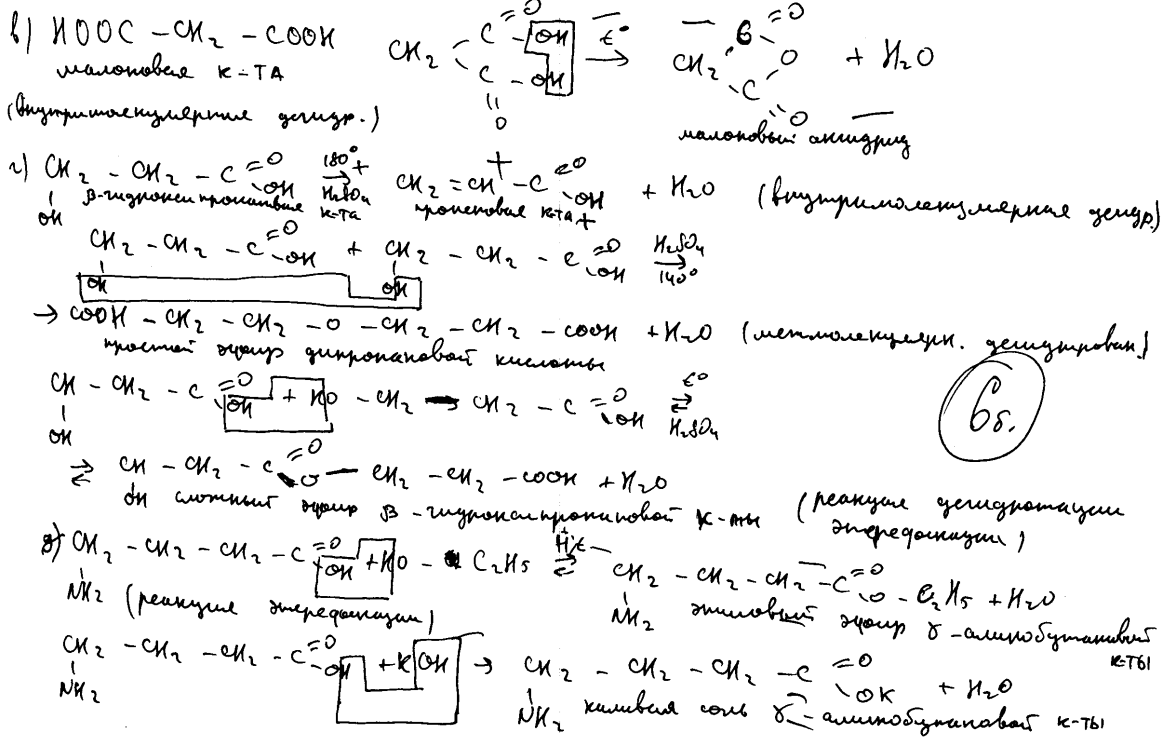 в) HOOC – CH₂ – COOH CH₂ C =O OH t° → CH₂ C =O O + H₂O
малоновая к-та C – OH =O C =O
(внутримолекулярная дегидр.) малоновый ангидрид
г) CH₂ – CH₂ – C =O OH 180° H₂SO₄ → CH₂ = CH – C =O OH + H₂O (внутримолекулярная дегидр.)
OH β-гидроксипропановая к-та пропеновая к-та
CH₂ – CH₂ – C =O OH + CH₂ – CH₂ – C =O OH H₂SO₄ → 140°
OH OH
→ COOH – CH₂ – CH₂ – O – CH₂ – CH₂ – COOH + H₂O (межмолекулярн. дегидрирован.)
простой эфир дипропановой кислоты
CH – CH₂ – C =O OH + HO – CH₂ – CH₂ – C =O OH t° ⇄ H₂SO₄
OH
6б.
⇄ CH – CH₂ – C =O O – CH₂ – CH₂ – COOH + H₂O
OH сложный эфир β-гидроксипропановой к-ты (реакция дегидротации этерефикации)
д) CH₂ – CH₂ – CH₂ – C =O OH + HO – C₂H₅ H⁺, t ⇄ CH₂ – CH₂ – CH₂ – C =O O – C₂H₅ + H₂O
NH₂ (реакция этерефикации) NH₂ этиловый эфир γ-аминобутановой к-ты
CH₂ – CH₂ – CH₂ – C =O OH + KOH → CH₂ – CH₂ – CH₂ – C =O OK + H₂O
NH₂ NH₂ калиевая соль γ-аминобутановой к-ты